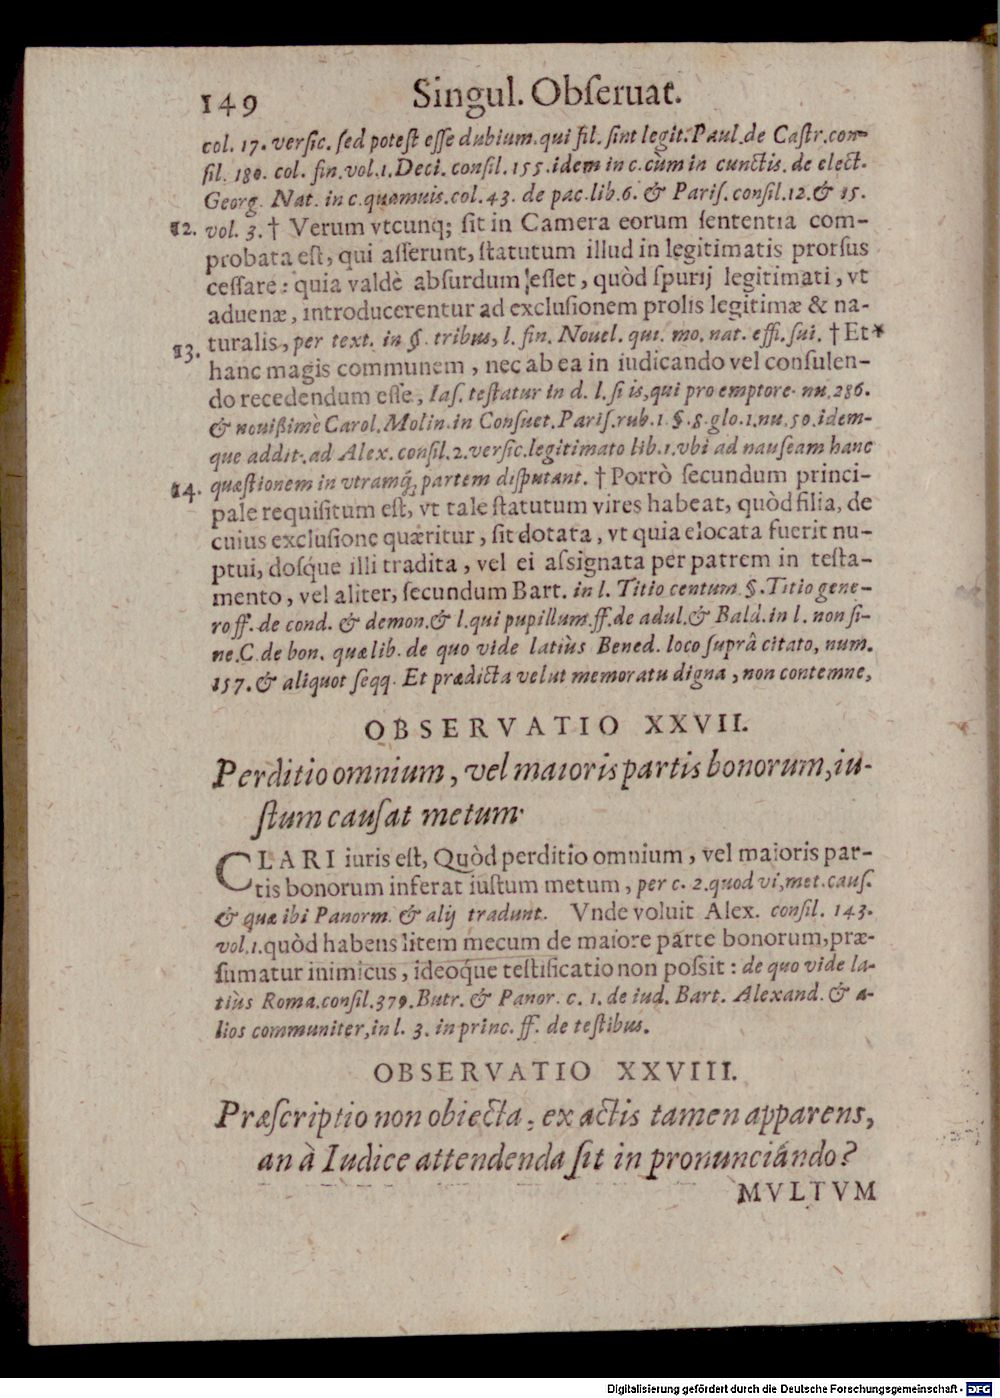 149 Singul. Obſeruat.
col. 17. verſic. ſed poteſt eſſe dubium. qui fil. ſint legit. Paul. de Caſtr. con-
ſil. 180. col. fin. vol. 1. Deci. conſil. 155. idem in c. cùm in cunctis. de elect.
Georg. Nat. in c. quamuis. col. 43. de pac. lib. 6. & Pariſ. conſil. 12. & 15.
12. vol. 3. † Verum vtcunq; ſit in Camera eorum ſententia com-
probata eſt, qui aſſerunt, ſtatutum illud in legitimatis prorſus
ceſſare: quia valdè abſurdum eſſet, quòd ſpurij legitimati, vt
aduenæ, introducerentur ad excluſionem prolis legitimæ & na-
13. turalis, per text. in §. tribus, l. fin. Nouel. qui. mo. nat. effi. ſui. † Et*
hanc magis communem, nec ab ea in iudicando vel conſulen-
do recedendum eſſe, Iaſ. teſtatur in d. l. ſi is, qui pro emptore. nu. 286.
& nouißimè Carol. Molin. in Conſuet. Pariſ. rub. 1. §. 8. glo. 1. nu. 50. idem-
que addit. ad Alex. conſil. 2. verſic. legitimato lib. 1. vbi ad nauſeam hanc
14. quæſtionem in vtramq́; partem diſputant. † Porrò ſecundum princi-
pale requiſitum eſt, vt tale ſtatutum vires habeat, quòd filia, de
cuius excluſione quæritur, ſit dotata, vt quia elocata fuerit nu-
ptui, dosq́ue illi tradita, vel ei aſsignata per patrem in teſta-
mento, vel aliter, ſecundum Bart. in l. Titio centum. §. Titio gene-
ro ff. de cond. & demon. & l. qui pupillum. ff. de adul. & Bald. in l. non ſi-
ne. C. de bon. quæ lib. de quo vide latiùs Bened. loco ſuprâ citato, num.
157. & aliquot ſeqq. Et prædicta velut memoratu digna, non contemne,
OBSERVATIO XXVII.
Perditio omnium, vel maioris partis bonorum, iu-
ſtum cauſat metum.
CLARI iuris eſt, Quòd perditio omnium, vel maioris par-
tis bonorum inferat iuſtum metum, per c. 2. quod vi, met. cauſ.
& quæ ibi Panorm. & alij tradunt. Vnde voluit Alex. conſil. 143.
vol. 1. quòd habens litem mecum de maiore parte bonorum, præ-
ſumatur inimicus, ideoq́ue teſtificatio non poſsit: de quo vide la-
tiùs Roma. conſil. 379. Butr. & Panor. c. 1. de iud. Bart. Alexand. & a-
lios communiter, in l. 3. in princ. ff. de teſtibus.
OBSERVATIO XXVIII.
Præſcriptio non obiecta, ex actis tamen apparens,
an à Iudice attendenda ſit in pronunciando?
MVLTVM
Digitalisierung gefördert durch die Deutsche Forschungsgemeinschaft - DFG